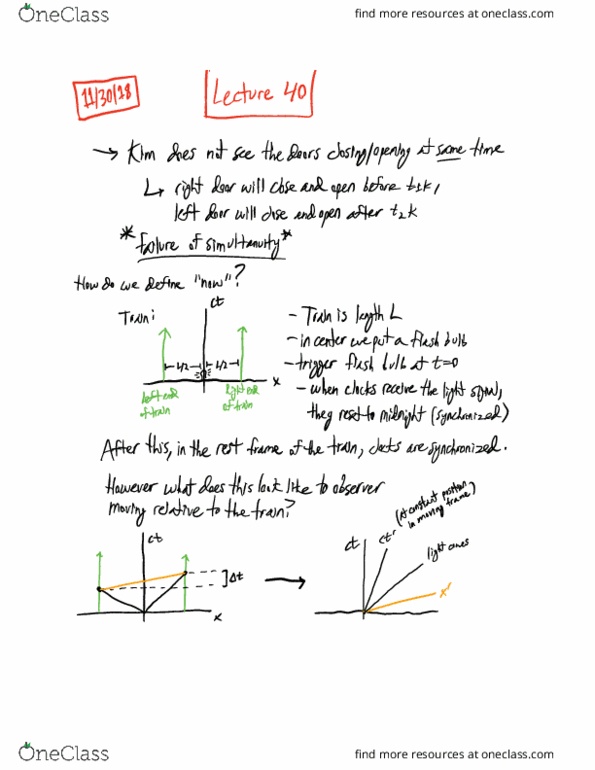 OneClass
find more resources at oneclass.com
11/30/18
Lecture 40
→ Kim does not see the doors closing/opening at same time
↳ right door will close and open before t₁k,
left door will close and open after t₂k
* failure of simultanuity *
How do we define "now"?
Train:
ct
L/2
L/2
x
Left end
of train
Right end
of train
- Train is length L
- in center we put a flash bulb
- trigger flash bulb at t=0
- when clocks receive the light signal,
they reset to midnight (synchronized)
After this, in the rest frame of the train, clocks are synchronized.
However what does this look like to observer
moving relative to the train?
ct
Δt
x
ct
ct'
(At constant position
in moving frame)
light cones
x'
OneClass
find more resources at oneclass.com